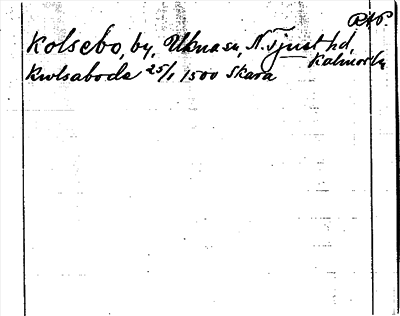 Kolsebo, by, Ukna sn, N. Tjust hd,
Kalmar län
Kwlsabode 25/1 1500 Skara